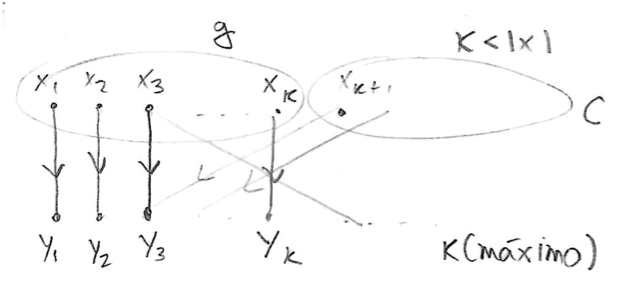 g
K < |x|
x₁ x₂ x₃ ..... x_K x_{K+1}
C
L L
y₁ y₂ y₃ y_K ..... K(máximo)